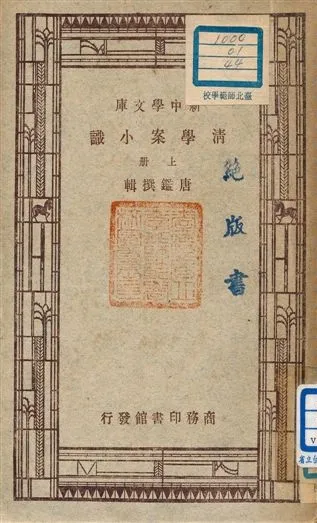 1000
01
44
臺北師範學校
新中學文庫
清學案小識
上冊
唐鑑撰輯
絕版書
商務印書館發行
V
省立